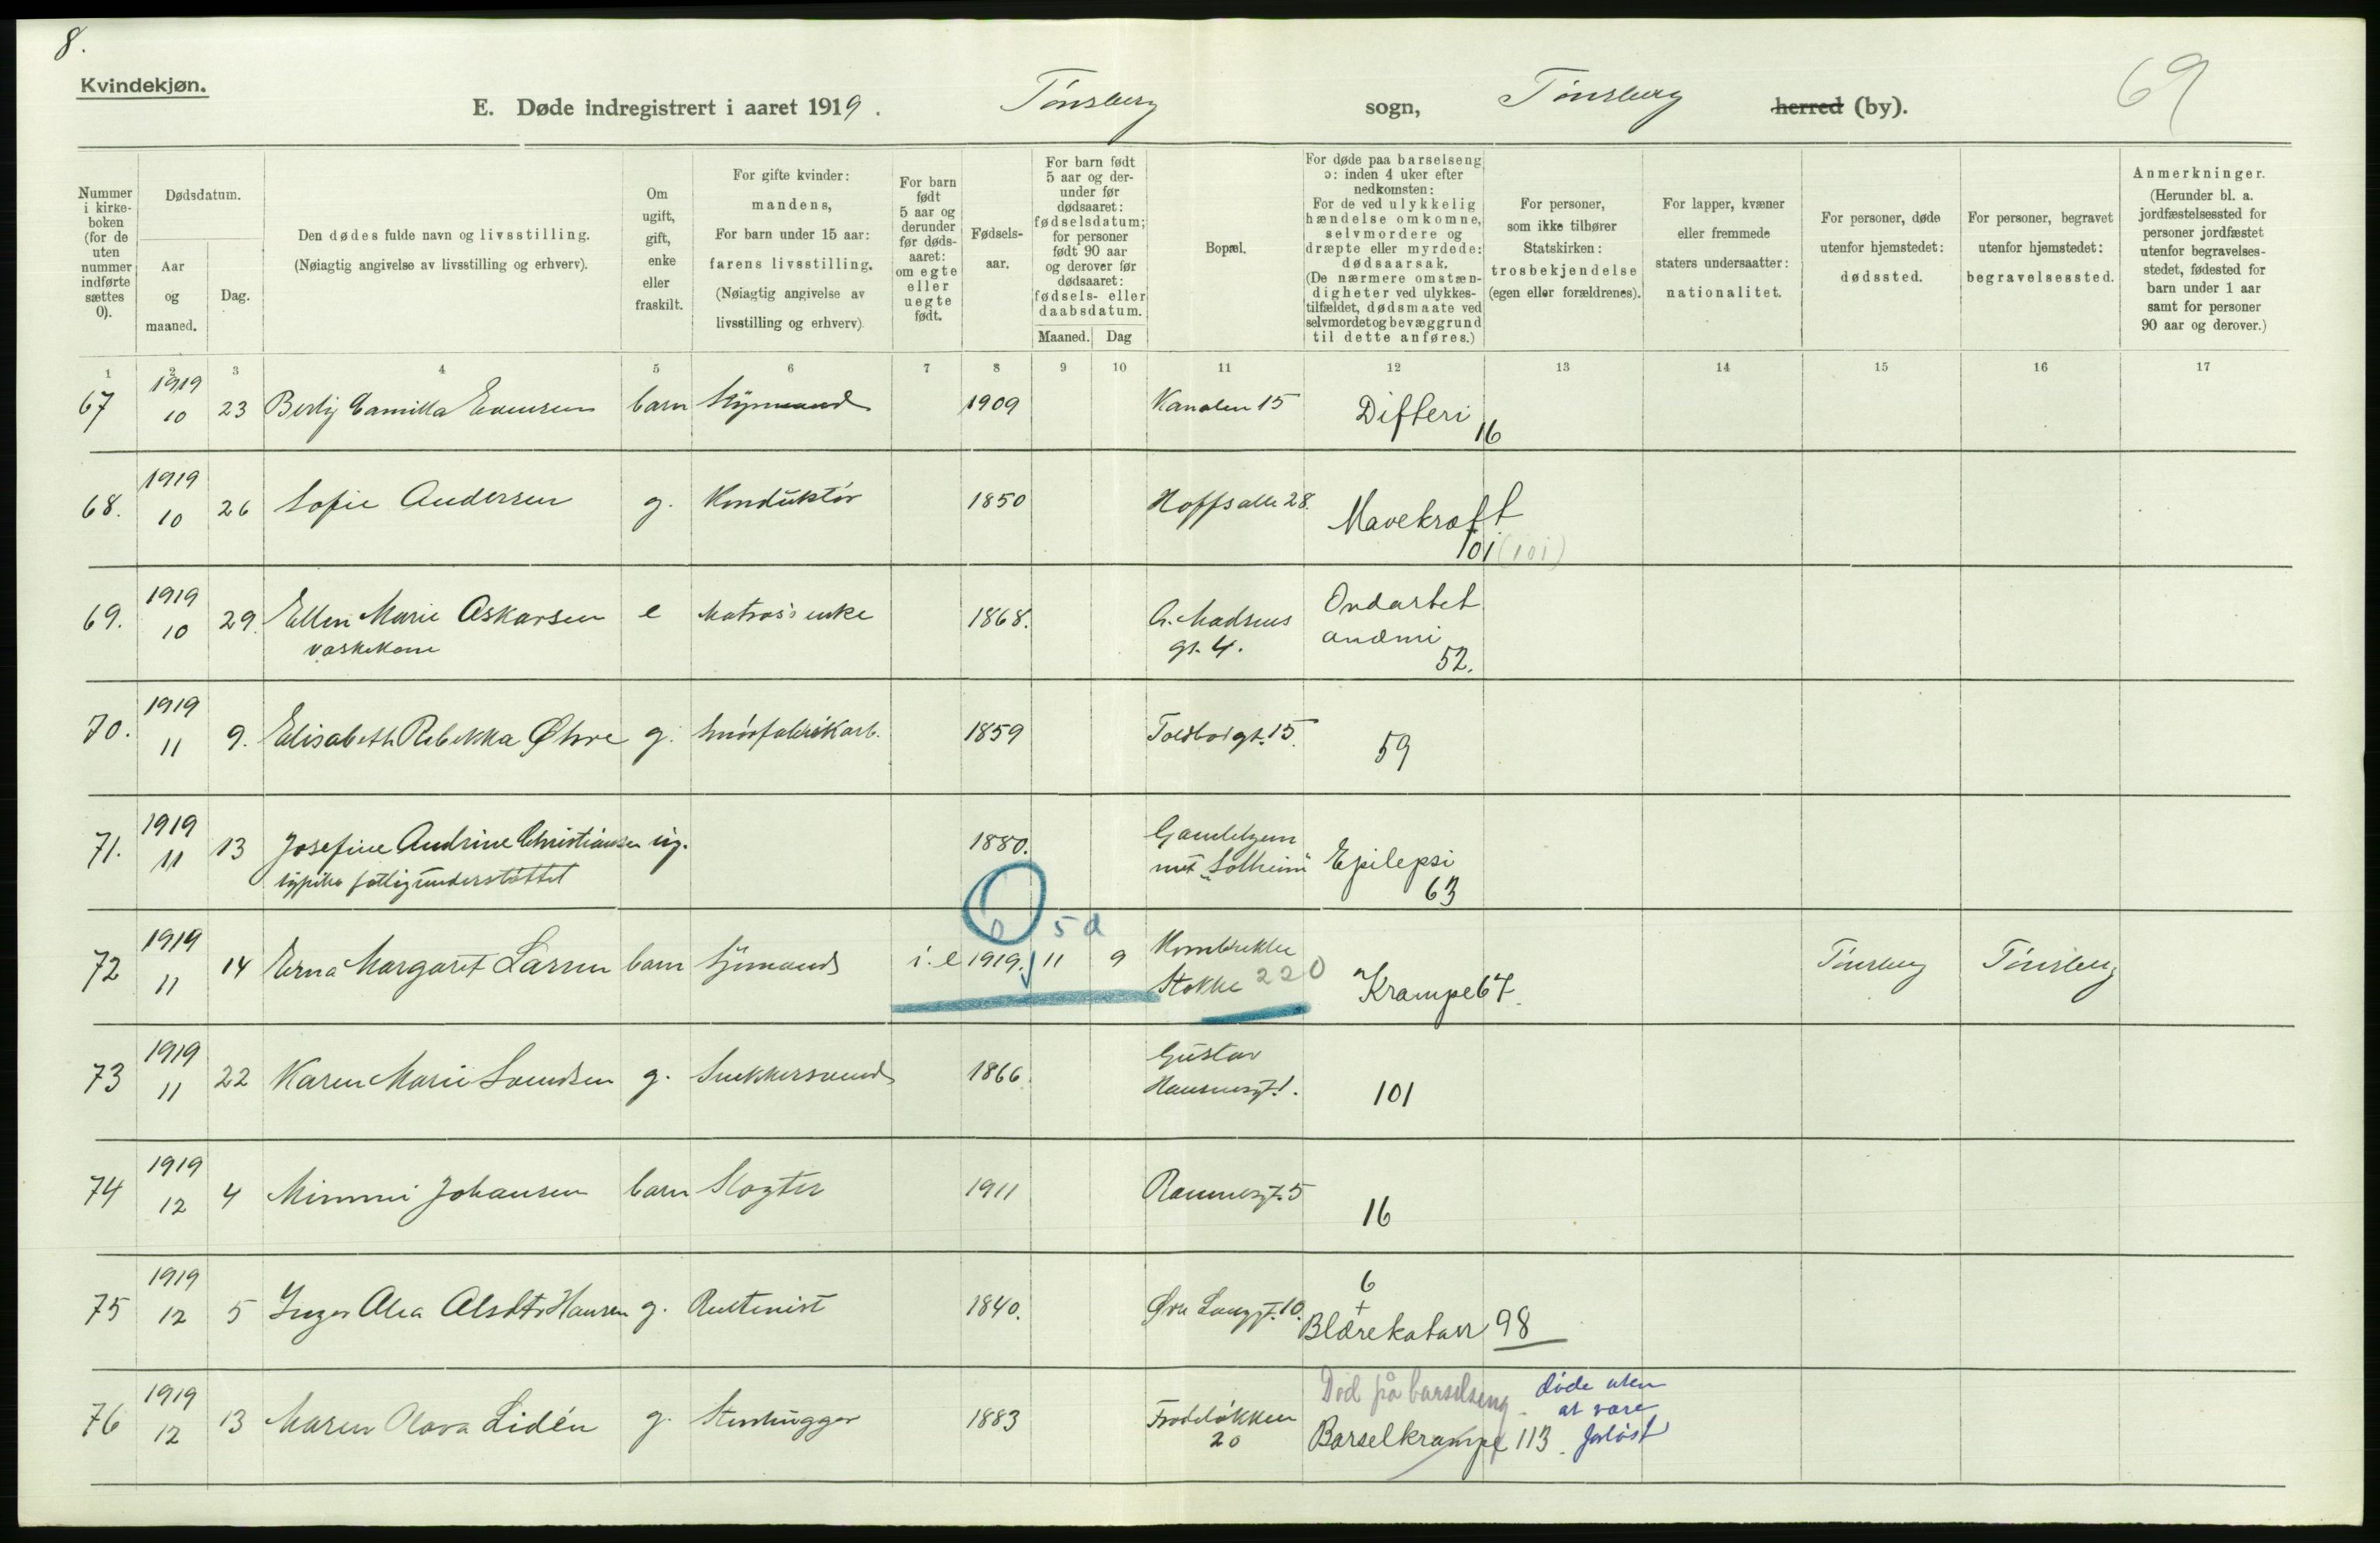 8.
Kvindekjøn.
E. Døde indregistrert i aaret 1919. Tønsberg sogn, Tønsberg herred (by).
69
Nummer i kirkeboken (for de uten nummer indførte sættes 0).
Dødsdatum.
Aar og maaned.
Dag.
Den dødes fulde navn og livsstilling.
(Nøiagtig angivelse av livsstilling og erhverv).
Om ugift, gift, enke eller fraskilt.
For gifte kvinder: mandens,
For barn under 15 aar: farens livsstilling.
(Nøiagtig angivelse av livsstilling og erhverv)
For barn født 5 aar og derunder før dødsaaret: om egte eller uegte født.
Fødselsaar.
For barn født 5 aar og derunder før dødsaaret: fødselsdatum; for personer født 90 aar og derover før dødsaaret: fødsels- eller daabsdatum.
Maaned. Dag
Bopæl.
For døde paa barselseng ɔ: inden 4 uker efter nedkomsten:
For de ved ulykkelig hændelse omkomne, selvmordere og dræpte eller myrdede: dødsaarsak.
(De nærmere omstændigheter ved ulykkestilfældet, dødsmaate ved selvmordet og bevæggrund til dette anføres.)
For personer, som ikke tilhører Statskirken: trosbekjendelse (egen eller forældrenes).
For lapper, kvæner eller fremmede staters undersaatter: nationalitet.
For personer, døde utenfor hjemstedet: dødssted.
For personer, begravet utenfor hjemstedet: begravelsessted.
Anmerkninger.
(Herunder bl. a. jordfæstelsessted for personer jordfæstet utenfor begravelsesstedet, fødested for barn under 1 aar samt for personer 90 aar og derover.)
1 2 3 4 5 6 7 8 9 10 11 12 13 14 15 16 17
67 1919 10 23 Camilla barn 1909 Kanalen 15 Difteri 16
68. 1919 10 26 Sofie Andersen g. Konduktør 1850 Hoffsalle 28. Mavekræft 101 (101)
69. 1919 10 29. Ellen Marie Askarsen e Matros's enke 1868. Madsens Ondartet
vaskekone gt. 4. anæmi 52.
70. 1919 11 9. Elisabeth Rebekka Øhre g. 1859 Toldbodgt. 15. 59
71. 1919 11 13 Josefine Andrine Christiansen ug. 1880.
fattigunderstøttet "Solheim" Epilepsi 63
6 5 d
72 1919 11 14 Erna Margaret Larsen barn Sjømand i. e 1919. 11 9
Stokke 220 Krampe 67. Tønsberg Tønsberg
73 1919 11 22 Karen Marie g. Snekkersvend 1866. Gustav
Hansensgt. 1. 101
74 1919 12 4 Mimmi Johansen barn Slagter 1911 16
75 1919 12 5 Inger Alsdtr Hansen g. 1840. Øvre Langgt. 10. 6 + Blærekatarr 98
76 1919 12 13 Maren Olava Lidén g. Stenhugger 1883 Træleløkken 20 Død på barselseng. døde uten at være forløst
Barselkrampe 113.